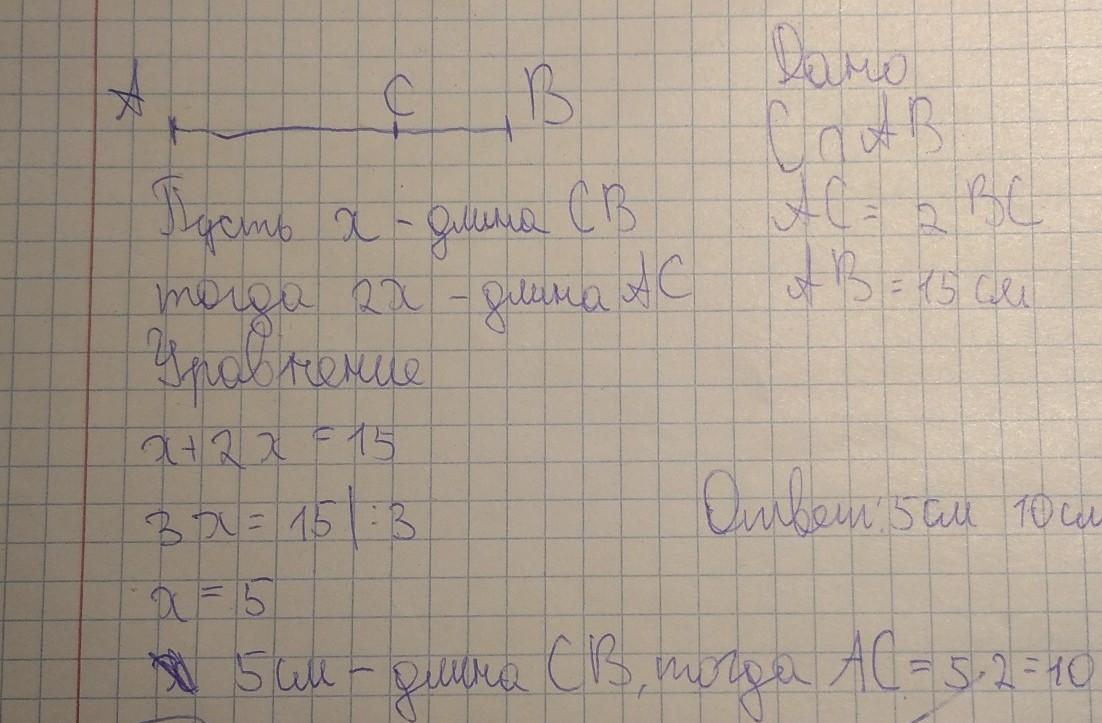 A C B
Дано
C ∩ AB
AC = 2 BC
AB = 15 см
Пусть x - длина CB
тогда 2x - длина AC
Уравнение
x + 2x = 15
3x = 15 | :3
x = 5
5 см - длина CB, тогда AC = 5·2 = 10
Ответ: 5 см 10 см